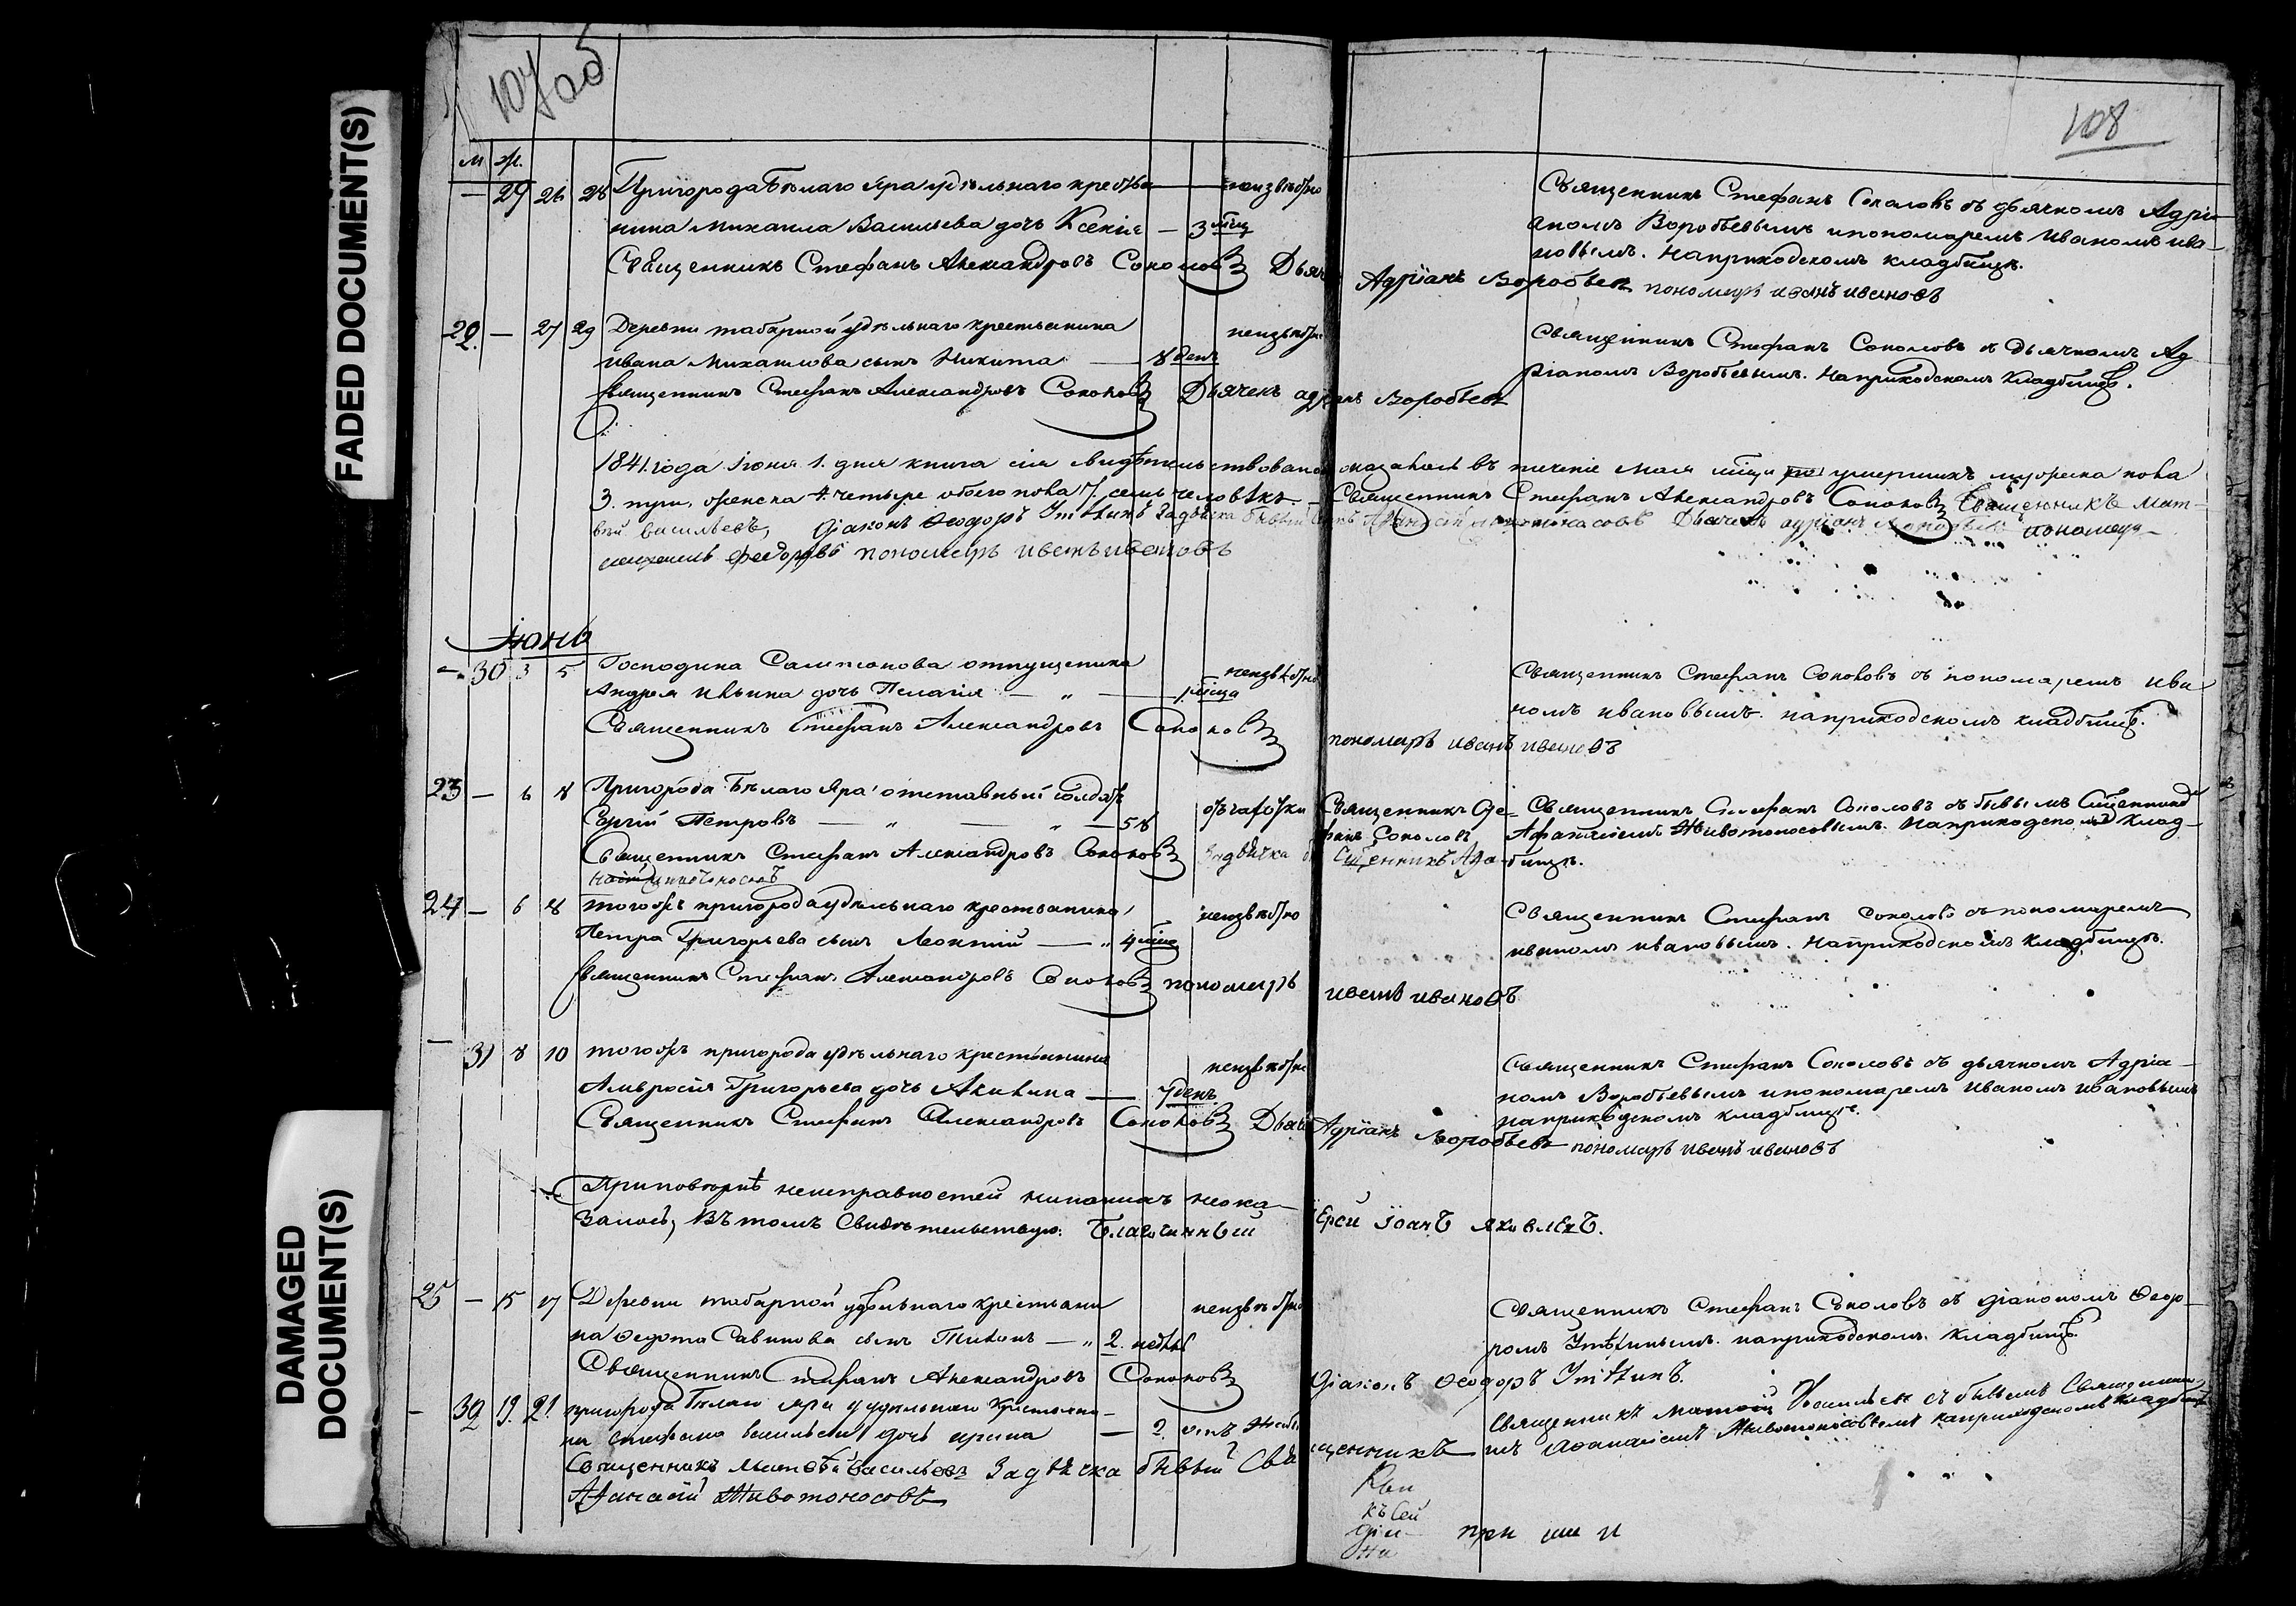 FADED DOCUMENT(S)
DAMAGED
DOCUMENT(S)
107 об
108
м ж.
— 29 26 28 Пригорода Бѣлаго Яра удѣльнаго крестья — неизвѣстно
нина Михаила Васильева дочь Ксенія — 3 мѣц
Священникъ Стефанъ Александровъ Соколовъ Дьяч Адріанъ Воробьевъ пономарь иванъ ивановъ
Священникъ Стефанъ Соколовъ съ дьячкомъ Адрі
аномъ Воробьевымъ и пономаремъ Иваномъ ива
новымъ. На приходскомъ кладбищѣ.
22. — 27 29 Деревни табарной удѣльнаго крестьянина неизвѣстно
ивана Михаилова сынъ Никита — 8 ден
Священникъ Стефанъ Александровъ Соколовъ Дьячекъ адріанъ Воробьевъ
Священникъ Стефанъ Соколовъ съ дьячкомъ Ад
ріаномъ Воробьевымъ. На приходскомъ кладбищѣ.
1841. года Іюня 1. дня книга сія свидѣтельствована оказалось въ теченіе Мая мѣца умершихъ мужеска пола
3. три, женска 4. четыре обоего пола 7. семь человѣкъ — Священникъ Стефанъ Александровъ Соколовъ Священникъ Мат-
вѣй васильевъ, Діаконъ Ѳеодоръ За дьячка бывый Дьячекъ адріанъ пономарь
михаилъ федоровъ пономарь иванъ ивановъ
Іюнь
— 30 3 5 Господина отпущеника неизвѣстно
Андрея Ильина дочь Пелагія — „ — 1 мѣца
Священникъ Стефанъ Александровъ Соколовъ пономарь иванъ ивановъ
Священникъ Стефанъ Соколовъ съ пономаремъ ива
номъ ивановымъ. на приходскомъ кладбищѣ.
23 — 6 8 Пригорода Бѣлаго Яра отставный солдатъ
Сергій Петровъ — „ — „ — 58 отъ чахотки Священникъ Сте-
фанъ Соколовъ
Священникъ Стефанъ Александровъ Соколовъ За дьячка б Сщенникъ Афа-
насій животоносовъ
Священникъ Стефанъ Соколовъ съ бывымъ Сщенникъ
Афанасіемъ Животоносовымъ. На приходскомъ клад-
бищѣ.
24 — 6 8 тогожъ пригорода удѣльнаго крестьянина неизвѣстно
Петра Григорьева сынъ Леонтій — „ 4 мѣца
Священникъ Стефанъ Александровъ Соколовъ пономарь иванъ ивановъ
Священникъ Стефанъ Соколовъ съ пономаремъ
иваномъ ивановымъ. На приходскомъ кладбищѣ.
— 31 8 10 тогожъ пригорода удѣльнаго крестьянина неизвѣстно
Амвросія Григорьева дочь Акилина — 7 ден.
Священникъ Стефанъ Александровъ Соколовъ Дьяч Адріанъ Воробьевъ пономарь иванъ ивановъ
Священникъ Стефанъ Соколовъ съ дьячкомъ Адріа-
номъ Воробьевымъ и пономаремъ Иваномъ Ивановымъ
на приходскомъ кладбищѣ.
При повѣркѣ неисправностей никакихъ не ока-
залось, Въ томъ Свидѣтельствую: Благочинный Іерей Іоанъ Яковлевъ.
25 — 15 17 Деревни табарной удѣльнаго крестьяни неизвѣстно
на Ѳедота Савинова сынъ Тихонъ — „ 2. недѣль
Священникъ Стефанъ Александровъ Соколовъ Діаконъ Ѳеодоръ
Священникъ Стефанъ Соколовъ съ діакономъ Ѳеодо-
ромъ на приходскомъ кладбищѣ.
— 32 19. 21. пригорода Бѣлаго яра удѣльнаго крестьяни-
на Стефана васильева дочь ирина — 2.
Священникъ Матвѣй васильевъ За дьячка бывый Священникъ
Афанасій Животоносовъ
Священникъ Матвѣй Васильевъ съ бывымъ Священни
мъ Афанасіемъ Животоносовымъ на приходскомъ кладбищѣ
къ сей
при